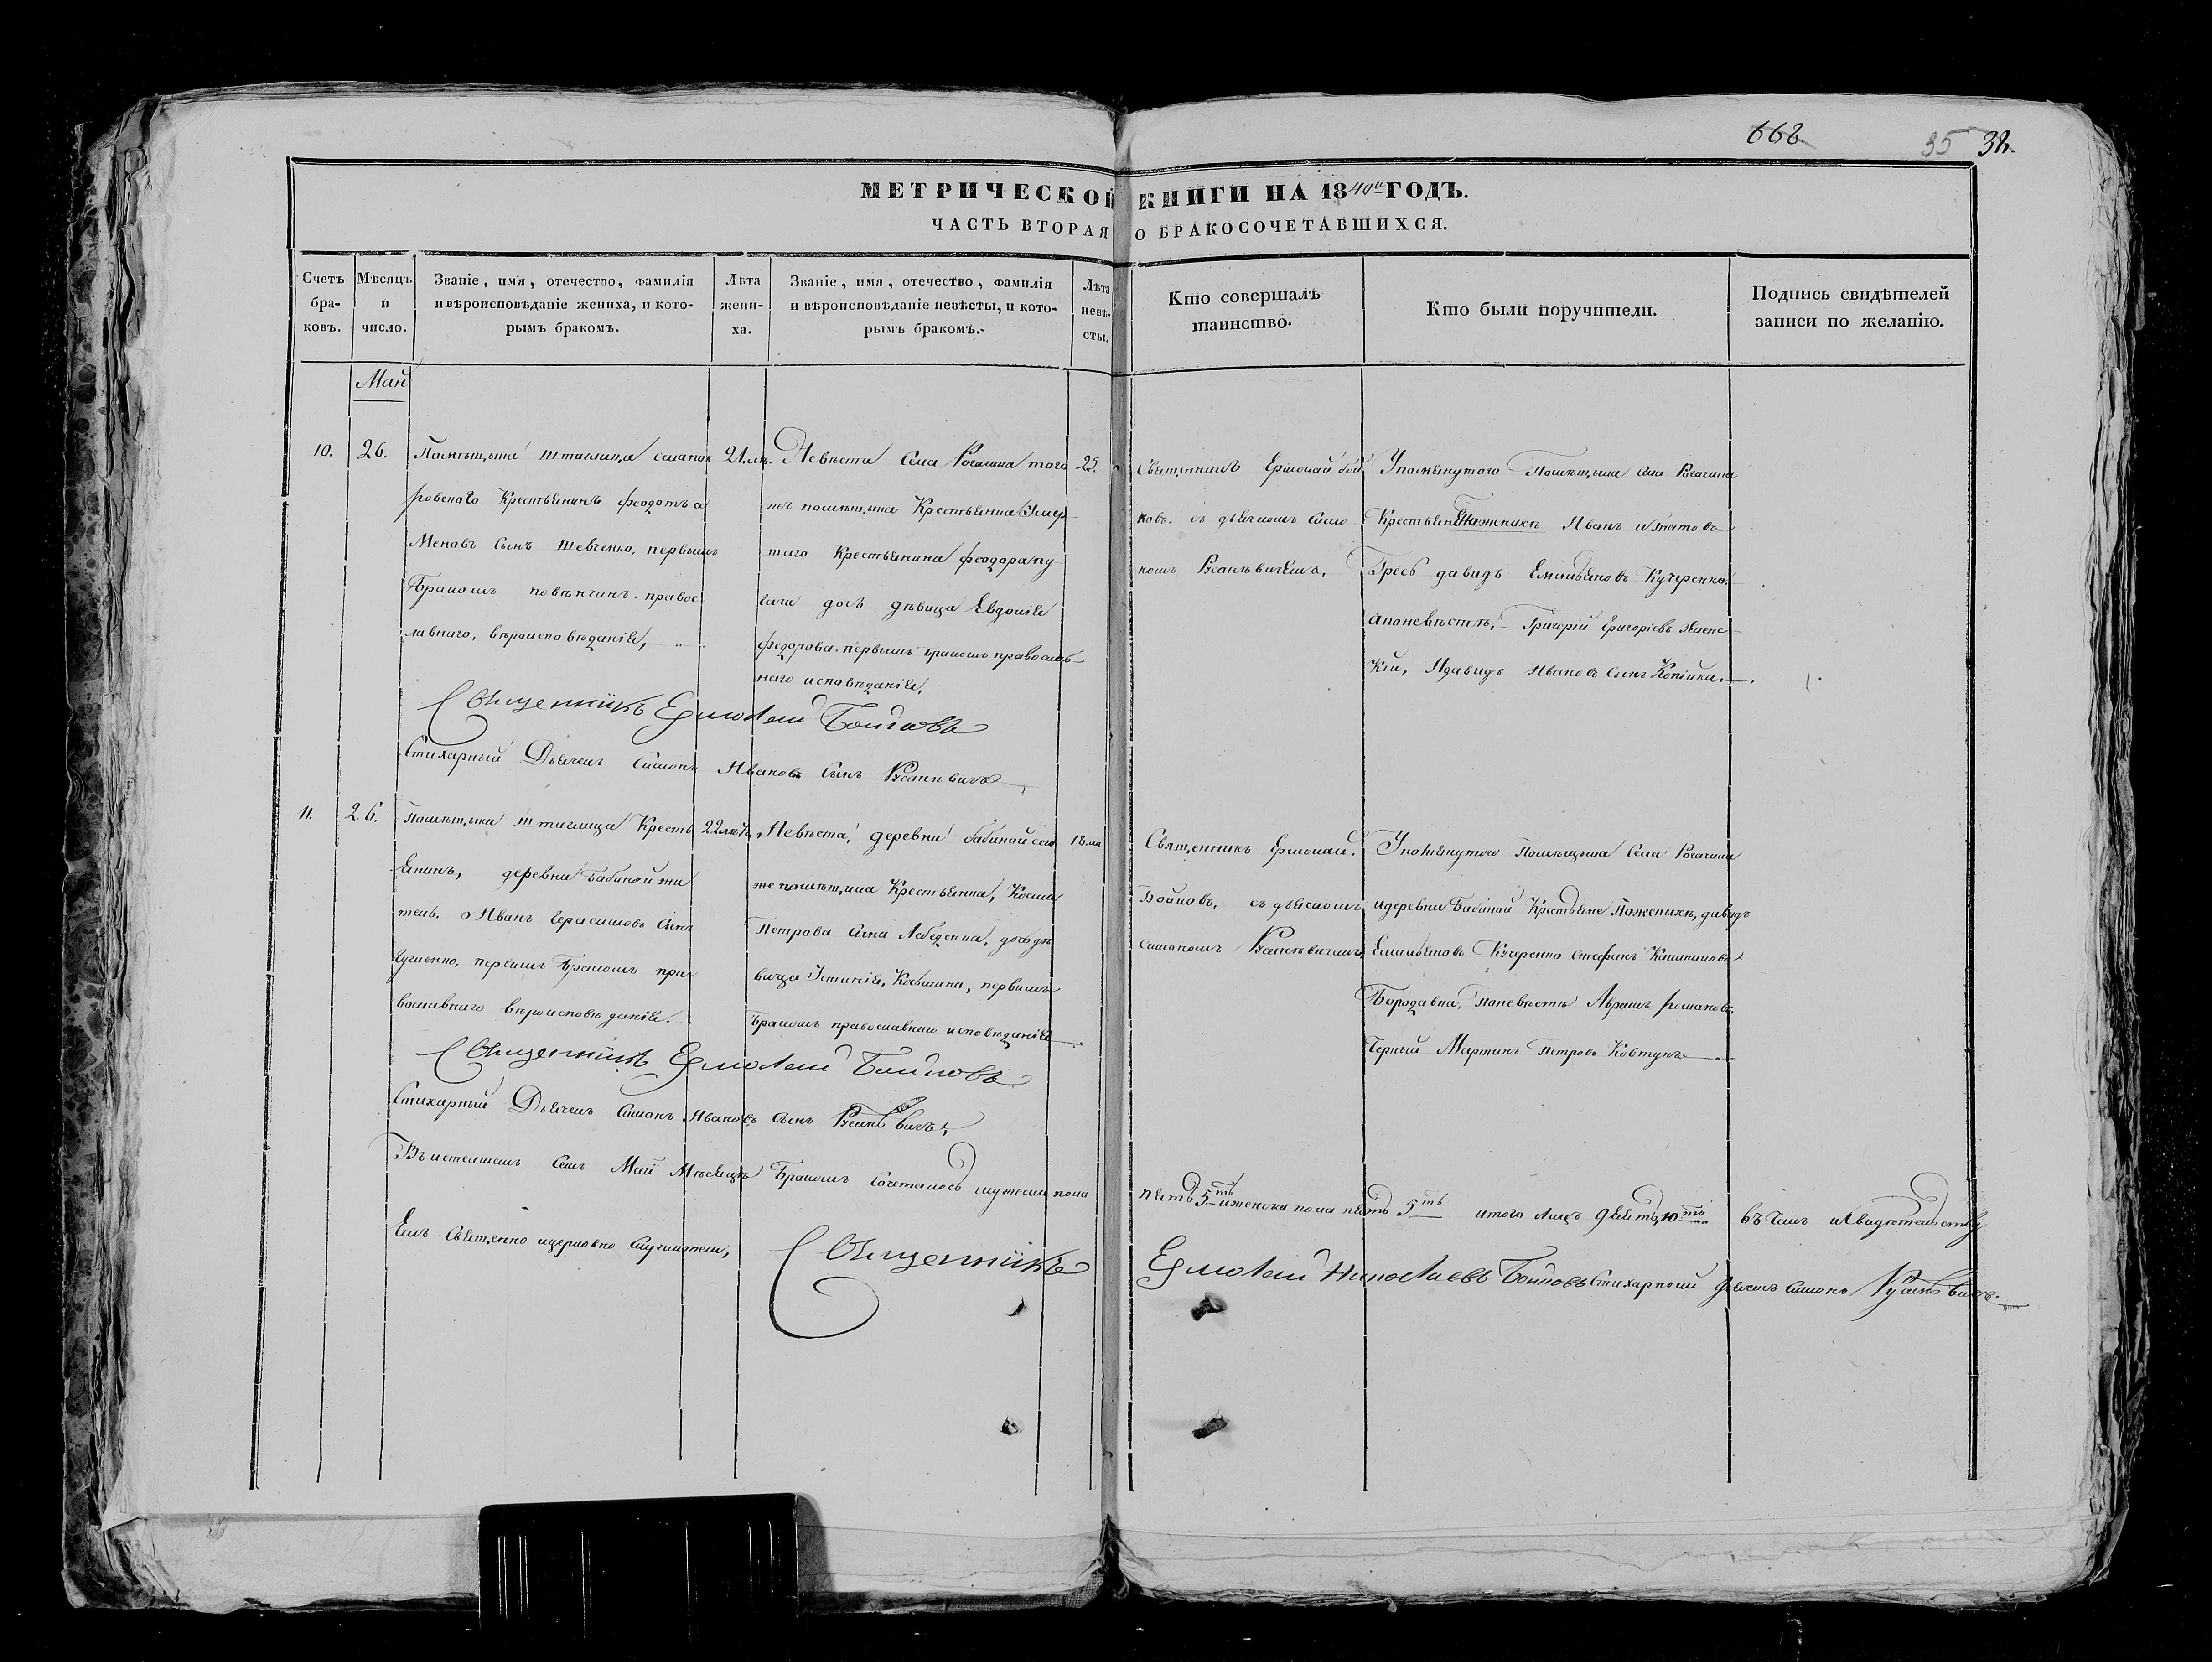 662.
35 32.
МЕТРИЧЕСКОЙ КНИГИ НА 1840й ГОДЪ.
ЧАСТЬ ВТОРАЯ О БРАКОСОЧЕТАВШИХСЯ.
Счетъ
бра-
ковъ.
Мѣсяцъ
и
число.
Званіе, имя, отечество, фамилія
и вѣроисповѣданіе жениха, и кото-
рымъ бракомъ.
Лѣта
жени-
ха.
Званіе, имя, отечество, фамилія
и вѣроисповѣданіе невѣсты, и кото-
рымъ бракомъ.
Лѣта
невѣ-
сты.
Кто совершалъ
таинство.
Кто были поручители.
Подпись свидѣтелей
записи по желанію.
Май
10.
26.
Помѣщика Штиглица
Крестьянинъ Феодотъ
сынъ Шевченко, первымъ
Бракомъ повѣнчанъ. правос
лавнаго, вѣроисповѣданія,
21.лѣ.
Невѣста Села Рогачика того
жъ помѣщика Крестьянка Умер
шаго Крестьянина Феодора
дочь дѣвица Евдокія
Федорова. первымъ бракомъ православ
наго исповѣданія.
25.
Священникъ Ермолай Бой
ковъ. съ дьячкомъ Симо
номъ
Упомянутого Помѣщика села Рогачика
Крестьяне Пажениху Иванъ
Давидъ Емильяновъ Кучеренко.
апоневѣстѣ. Григорій Григоріевъ
кій, Идавидъ Ивановъ сынъ Копійка.
Священникъ Ермолай Бойковъ
Стихарный Дьячекъ Симонъ Ивановъ Сынъ
11.
26.
Помѣщика Штиглица Кресть
янинъ, деревни Бабиной жи
тель. Иванъ Герасимовъ Сынъ
первымъ Бракомъ пра
вославнаго вѣроисповѣданія.
22 лѣтъ
Невѣста, деревни Бабиной сего
же помѣщика Крестьянка, Косми
Петрова Сына Лебеденка, дочь дѣ
вица Космина, первымъ
Бракомъ православнаго исповѣданія
18.лѣ
Священникъ Ермолай.
Бойковъ, съ дьячкомъ
симономъ
Упомянутого помѣщика Села Рогачика
идеревни Бабиной Крестьяне Поженихѣ, давидъ
Емильяновъ Кучеренко Стефанъ
Бородавка. Поневѣстѣ Аврамъ Романовъ.
Черный Мартинъ Петровъ Ковтунъ
Священникъ Ермолай Бойковъ
Стихарный Дьячекъ Симонъ Ивановъ сынъ
Въ истекшемъ семъ Май Мѣсяцѣ Бракомъ сочеталось мужеска пола пять 5ть иженска пола пять 5ть итого лицъ десять 10ть въ чемъ
Священно ицерковно служители, Священникъ Ермолай Николаевъ Бойковъ Стихарный дьячекъ Симонъ